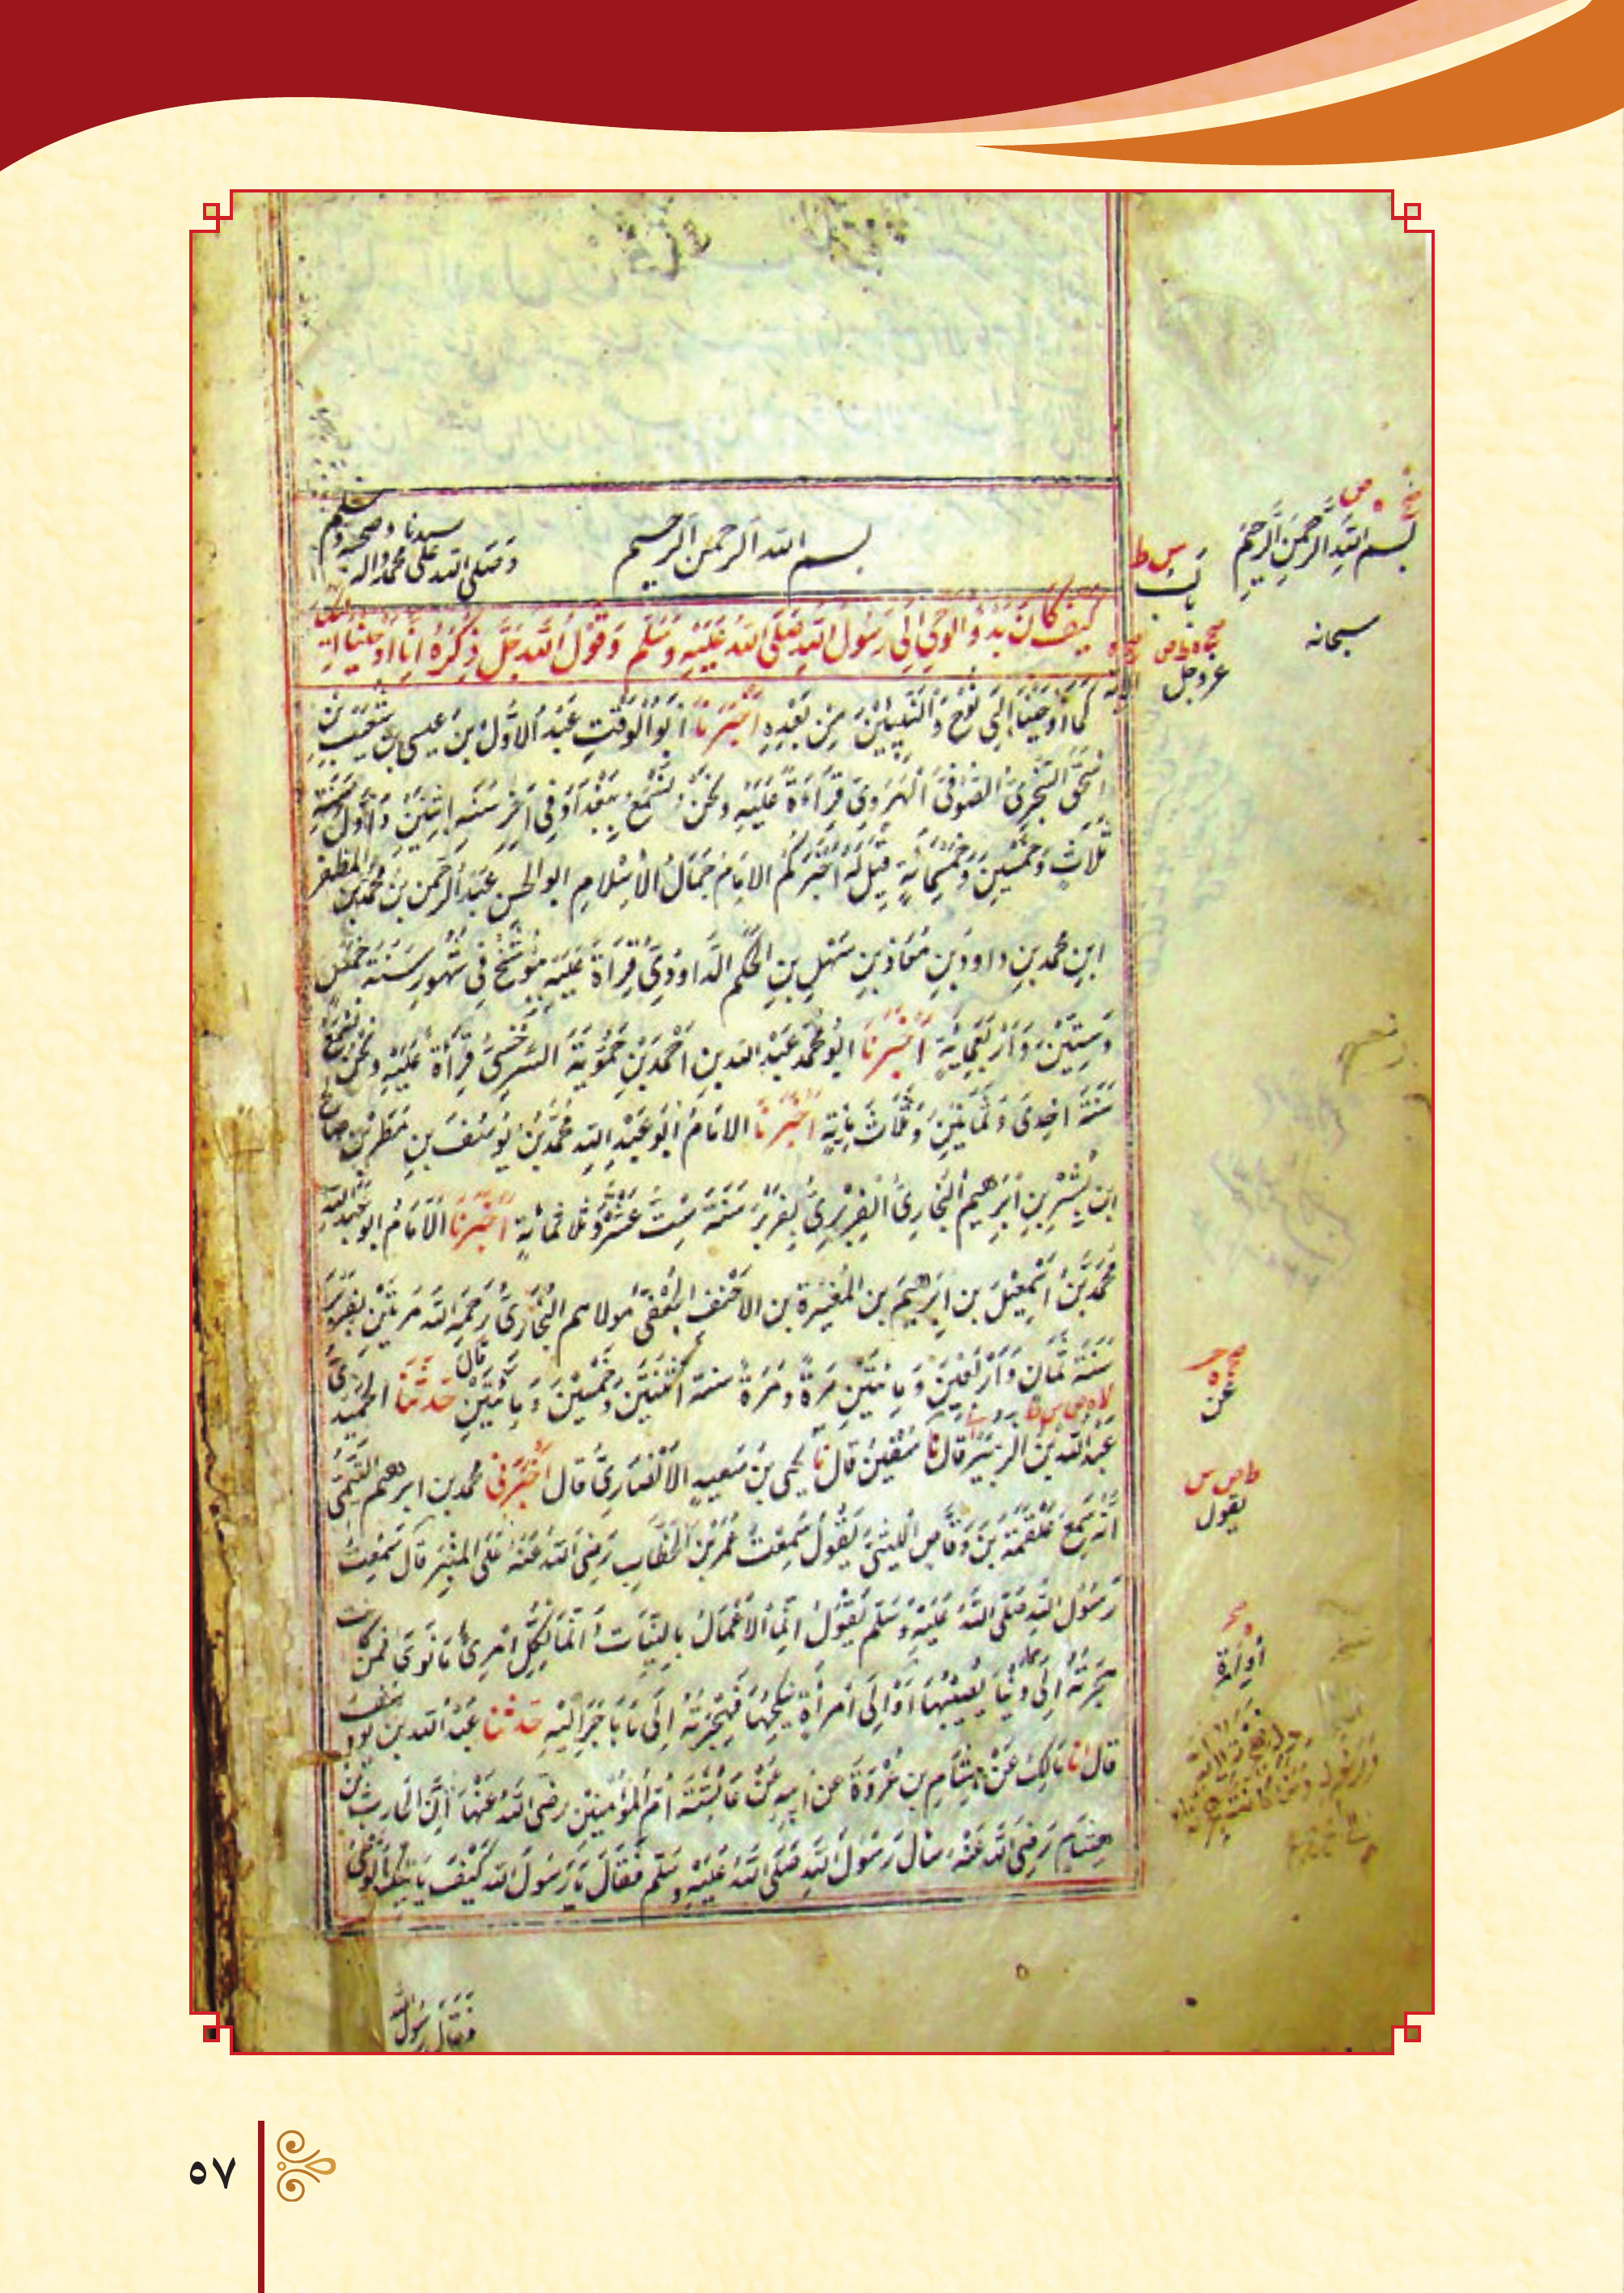 بسم الله الرحمن الرحيم
وصلى الله على سيدنا محمد واله وصحبه وسلم
كيف كان بدؤ الوحي الى رسول الله صلى الله عليه وسلم وقول الله جل ذكره انا اوحينا اليك
كما اوحينا الى نوح والنبيين من بعده اخبرنا ابو الوقت عبد الاول بن عيسى بن شعيب بن
اسحق السجزي الصوفي الهروي قراءة عليه ونحن نسمع ببغداد في اخر سنة اثنتين واول سنة
ثلاث وخمسين وخمسمائة قيل له اخبركم الامام جمال الاسلام ابو الحسن عبد الرحمن بن محمد بن المظفر
ابن محمد بن داود بن معاذ بن سهل بن الحكم الداوودي قراءة عليه ببوشنج في شهور سنة خمس
وستين واربعمائة اخبرنا ابو محمد عبد الله بن احمد بن حمويه السرخسي قراءة عليه ونحن نسمع
سنة احدى وثمانين وثلاث مائة اخبرنا الامام ابو عبد الله محمد بن يوسف بن مطر بن صالح
ابن بشر بن ابرهيم البخاري الفربري بفربر سنة ست عشر وثلاثمائة اخبرنا الامام ابو عبد الله
محمد بن اسمعيل بن ابرهيم بن المغيرة بن الاحنف الجعفي مولاهم البخاري رحمه الله مرتين بفربر
سنة ثمان واربعين ومائتين مرة ومرة سنة اثنتين وخمسين ومائتين قال حدثنا الحميدي
عبد الله بن الزبير قال نا سفين قال نا يحيى بن سعيد الانصاري قال اخبرني محمد بن ابرهيم التيمي
انه سمع علقمة بن وقاص الليثي يقول سمعت عمر بن الخطاب رضي الله عنه على المنبر قال سمعت
رسول الله صلى الله عليه وسلم يقول انما الاعمال بالنيات انما لكل امرئ ما نوى فمن كانت
هجرته الى دنيا يصيبها او الى امرأة ينكحها فهجرته الى ما هاجر اليه حدثنا عبد الله بن يوسف
قال انا مالك عن هشام بن عروة عن ابيه عن عائشة ام المؤمنين رضي الله عنها ان الحارث بن
هشام رضي الله عنه سأل رسول الله صلى الله عليه وسلم فقال يا رسول الله كيف ياتيك الوحي
فقال رسول الله
بسم الله الرحمن الرحيم
س ط
باب
سبحانه
عز وجل
الاية
عن
يقول
او امرأة
٥٧